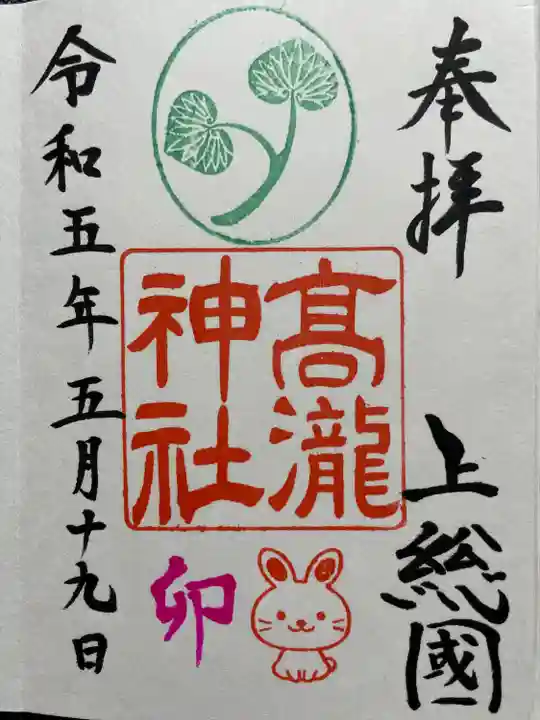 奉拝
上総國
髙瀧
神社
卯
令和五年五月十九日